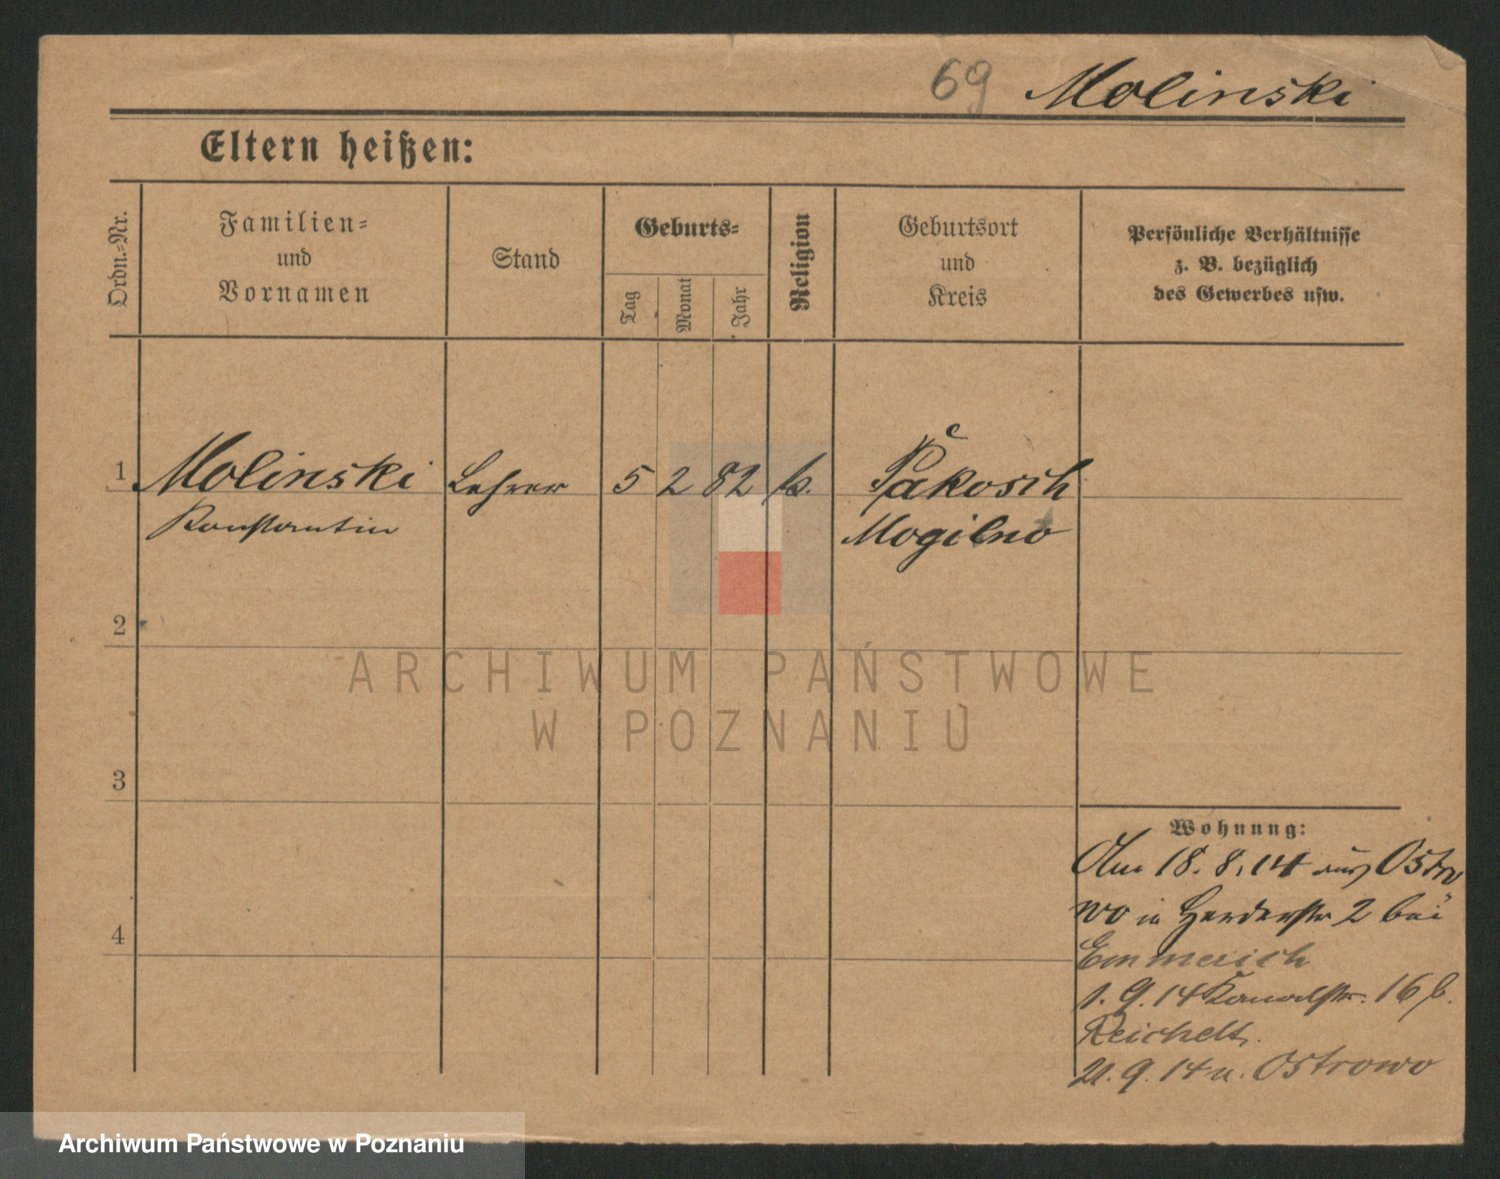 69 Molinski
Eltern heißen:
Ordn.-Nr.
Familien-
und
Vornamen
Stand
Geburts-
Tag
Monat
Jahr
Religion
Geburtsort
und
Kreis
Persönliche Verhältnisse
z. B. bezüglich
des Gewerbes usw.
1 Molinski Lehrer 5 2 82 k. Pakosch
Konstantin Mogilno
2
ARCHIWUM PAŃSTWOWE
W POZNANIU
3
Wohnung:
Am 18.8.14 aus Ostro
wo in Herderstr 2 bei
4
Emmerich
1.9.14 Kanalstr. 16 b.
Reichelt.
21.9.14 n. Ostrowo
Archiwum Państwowe w Poznaniu